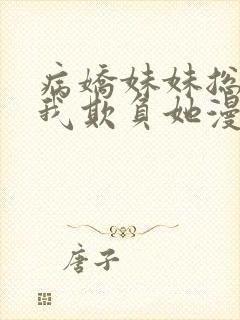 病嬌妹妹总
我欺負她漫
唐子